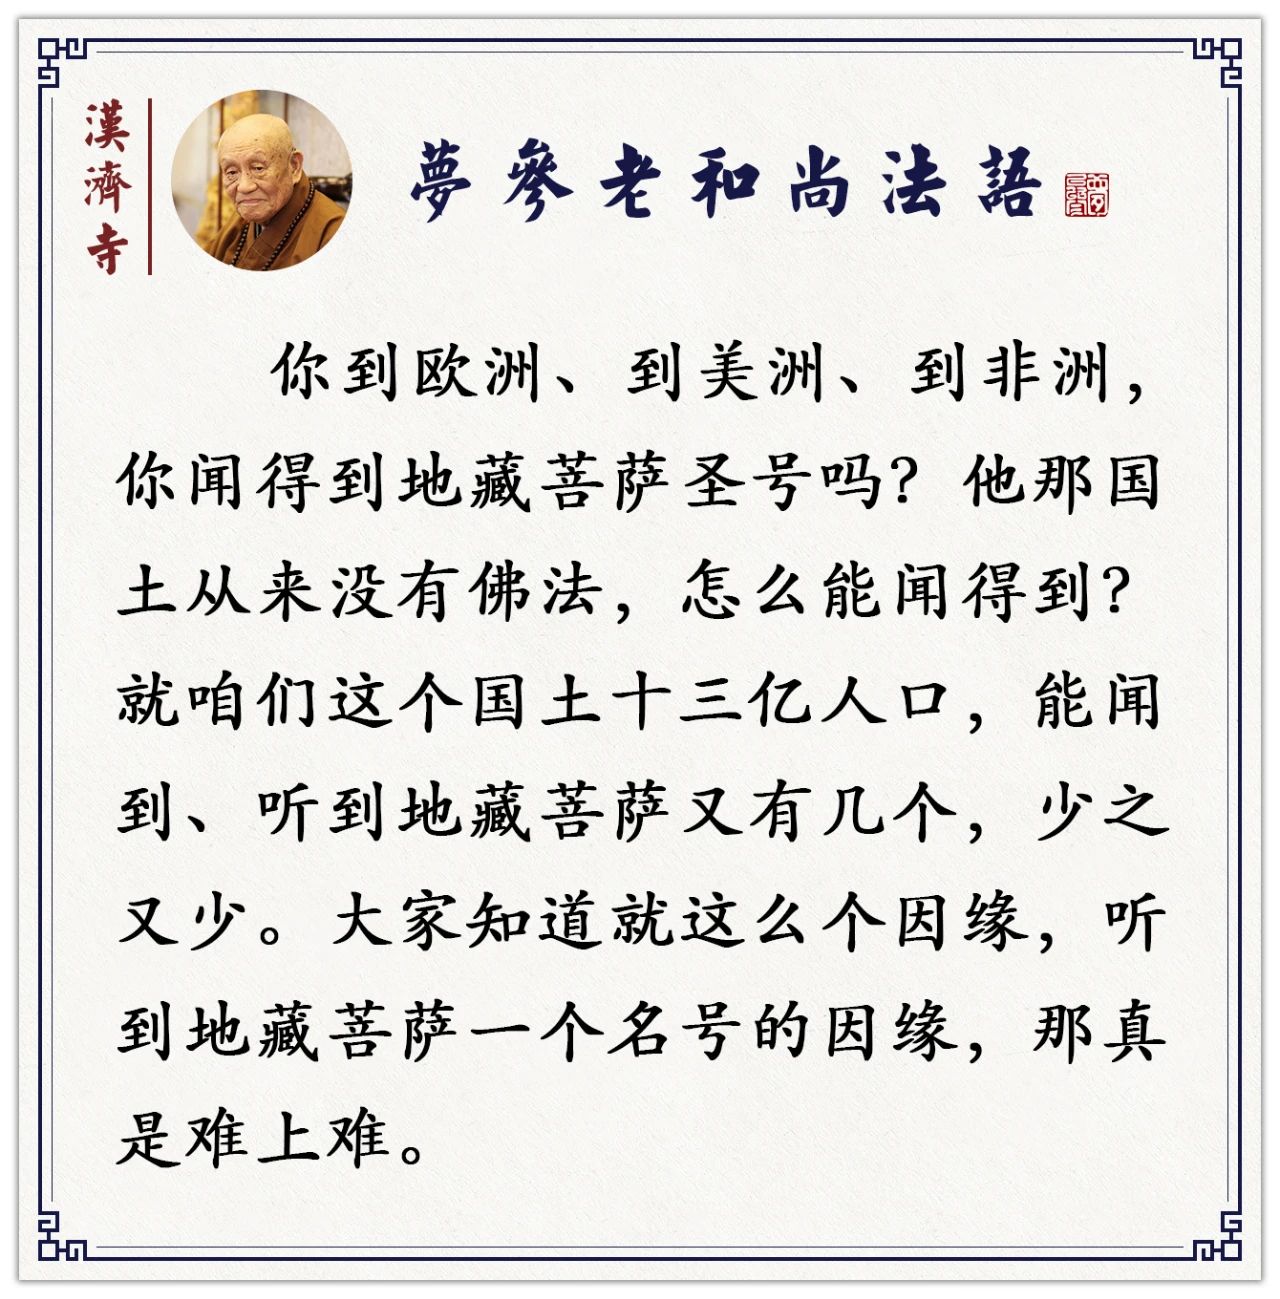 漢濟寺
夢參老和尚法語
你到欧洲、到美洲、到非洲，
你闻得到地藏菩萨圣号吗？他那国
土从来没有佛法，怎么能闻得到？
就咱们这个国土十三亿人口，能闻
到、听到地藏菩萨又有几个，少之
又少。大家知道就这么个因缘，听
到地藏菩萨一个名号的因缘，那真
是难上难。